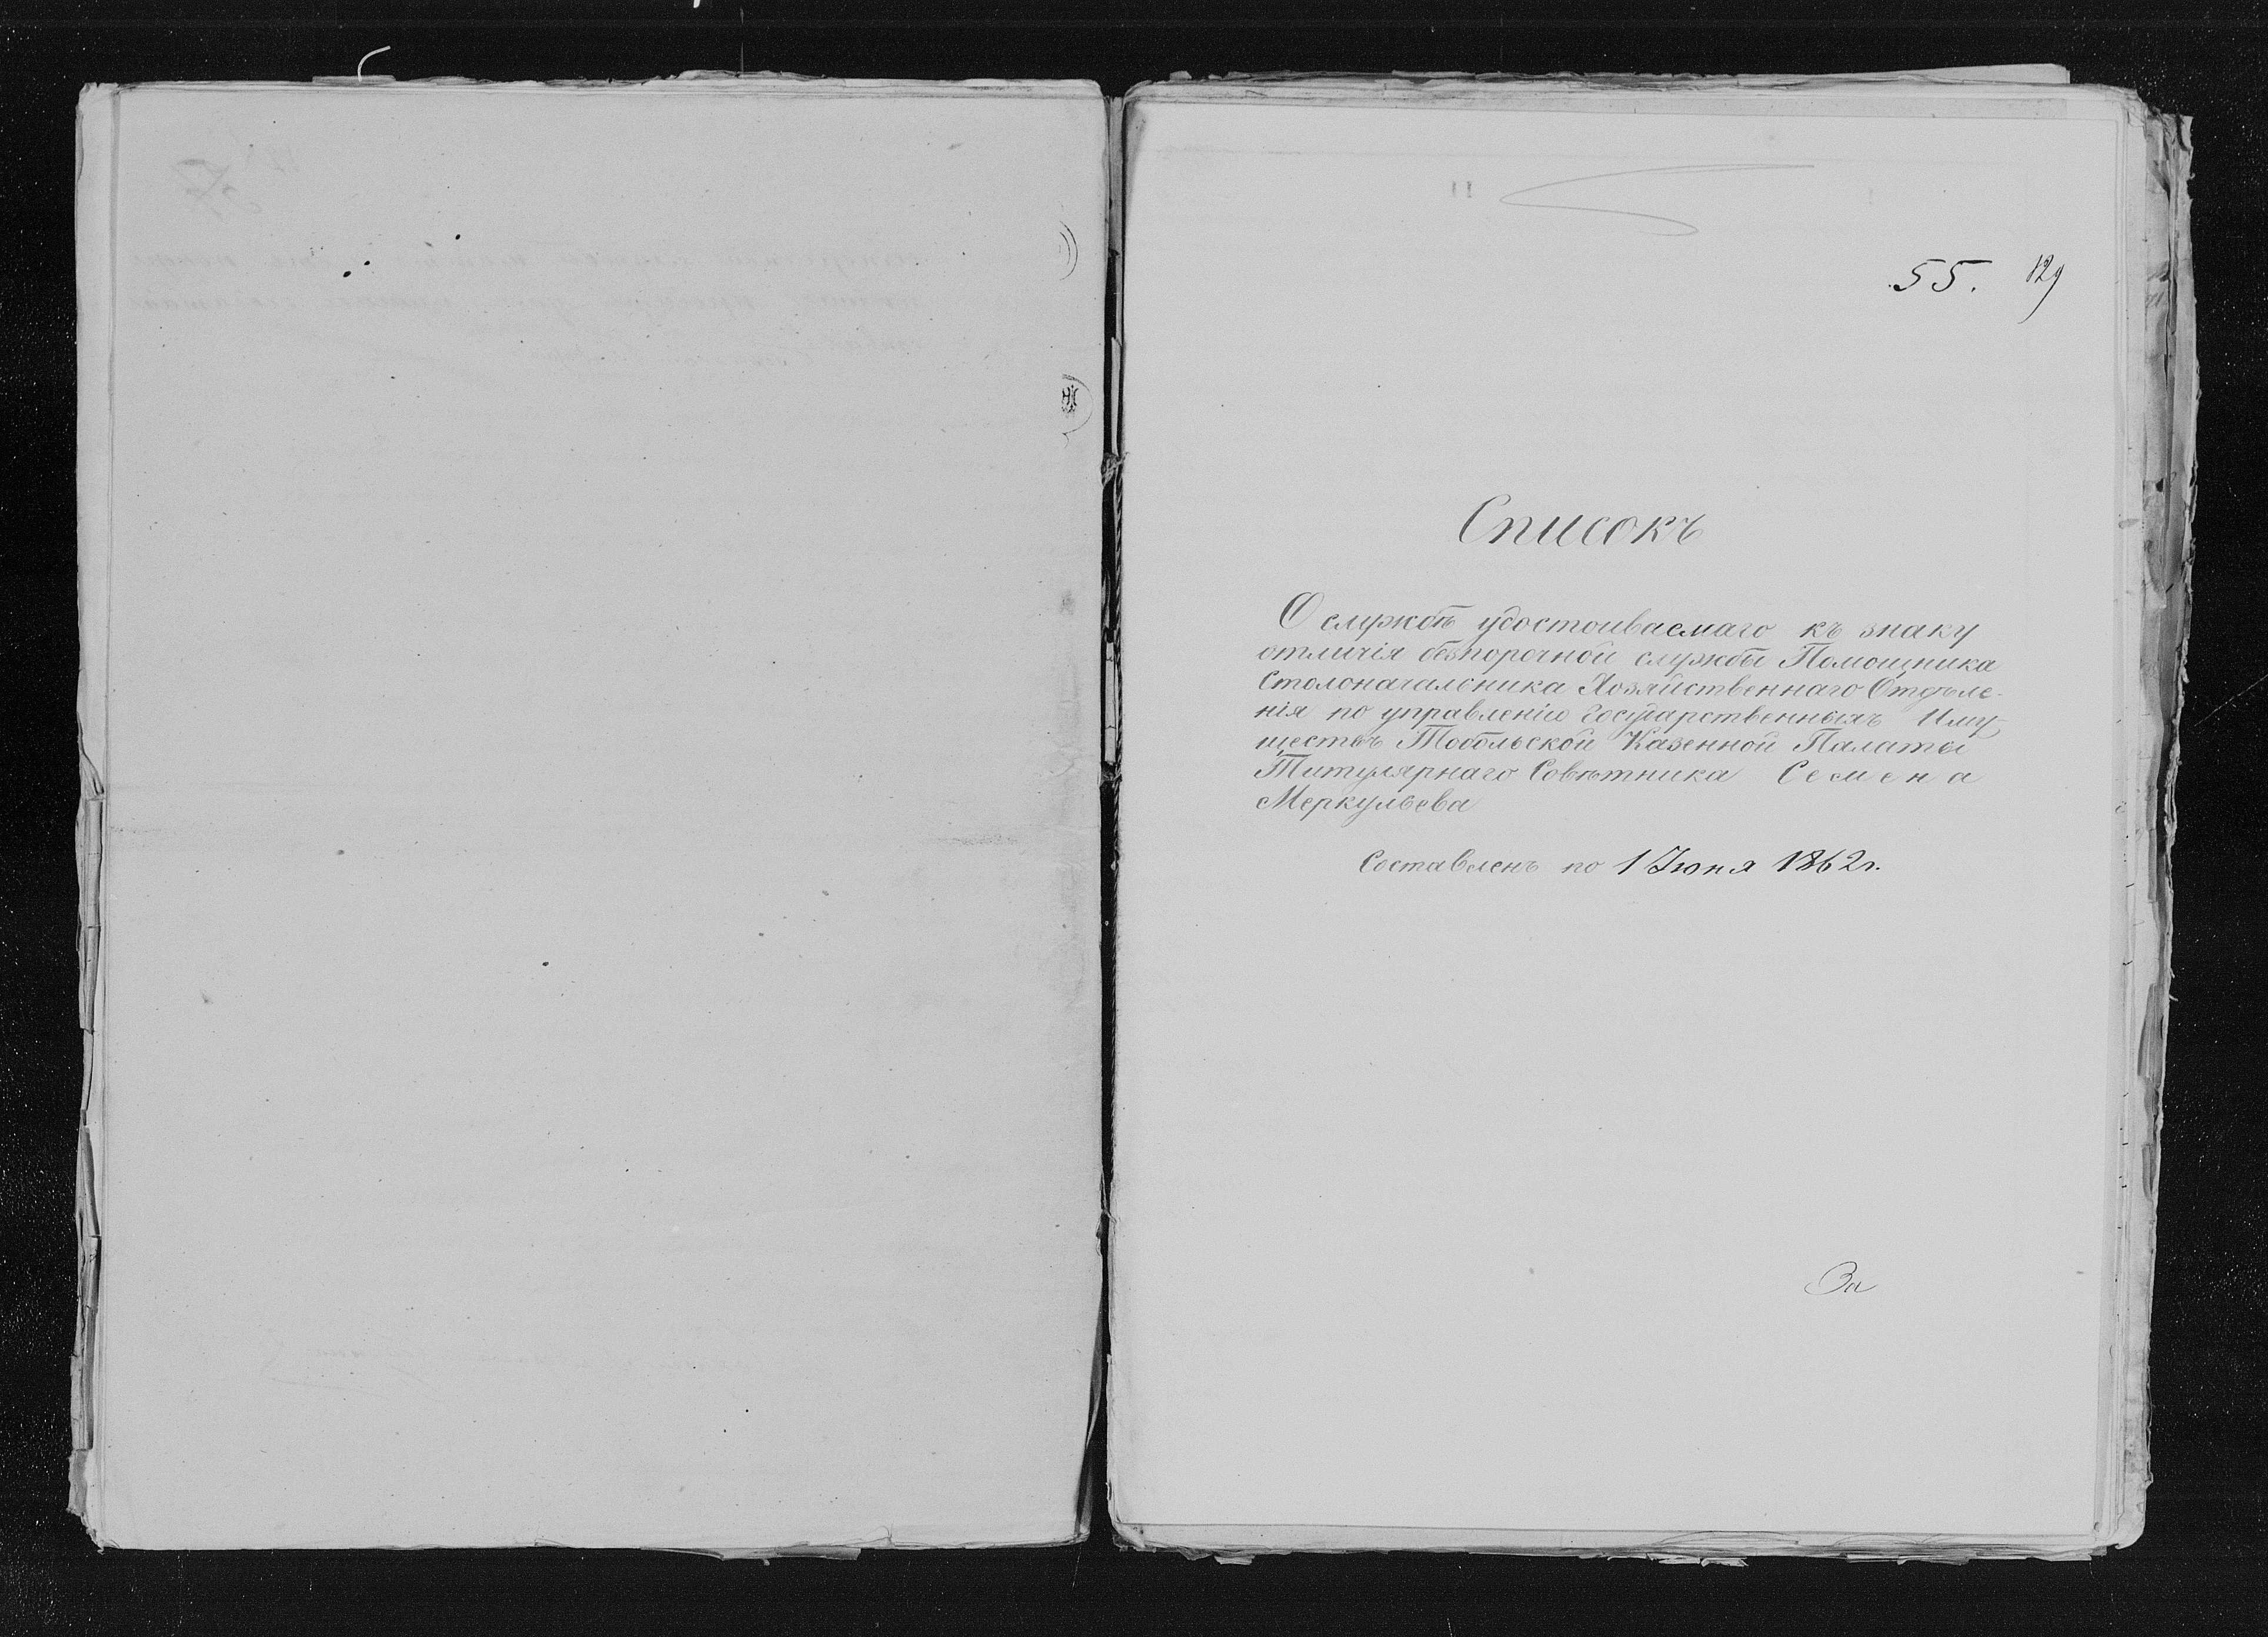 55. 129
Списокъ
О службѣ удостоиваемаго къ знаку
отличія безпорочной службы Помощника
Столоначальника Хозяйственнаго Отдѣле-
нія по управленію Государственныхъ Иму-
ществъ Тобольской Казенной Палаты
Титулярнаго Совѣтника Семена
Меркульева
Составленъ по 1 Июня 1862 г.
За